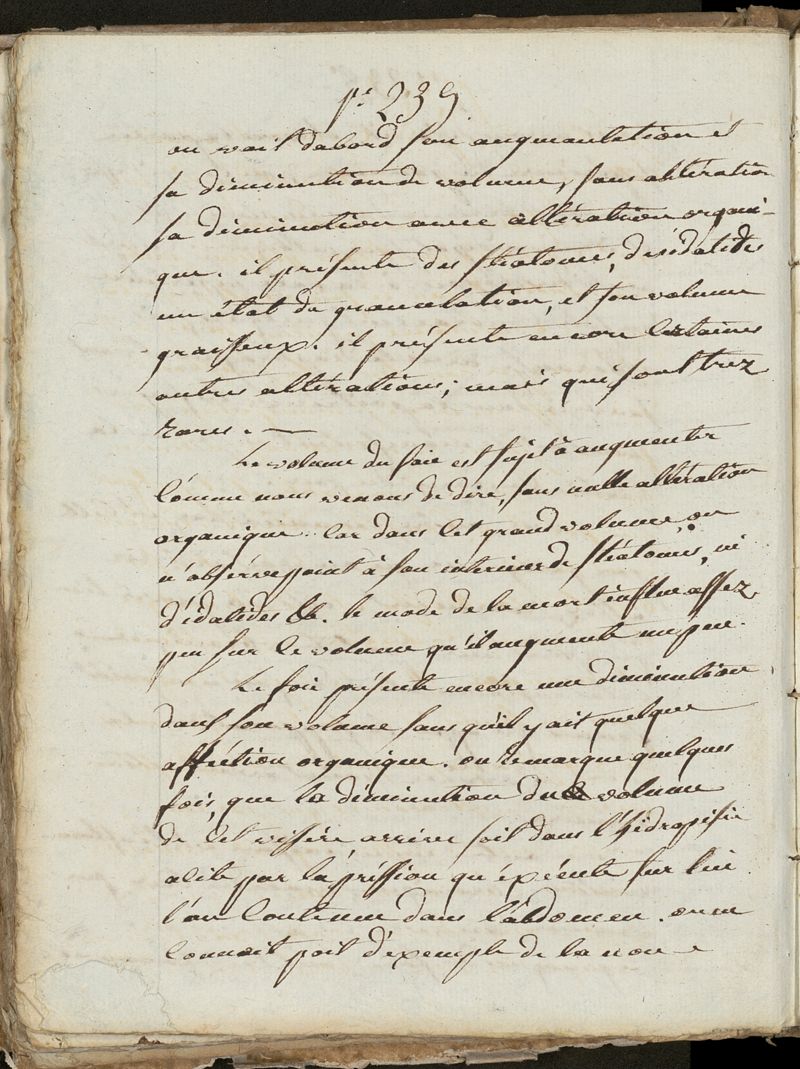 pe. 239
on voit dabord son augmantation et
sa diminution de volume, sans altération
sa diminution avec altération organi-
que. il présente des stéatomes, d'idatides
un état de granulation, et son volume
graisseux. il présente encore certaines
autres altérations; mais qui sont trez
rares. —
Le volume du foie est sujet à augmenter
comme nous venons de dire, sans nulle altération
organique. car dans cet grand volume, on
n'obsérve point à son interieur de stéatomes, ni
d'idatides &c. le mode de la mort influe assez
peu sur le volume qu'il augmente un peu.
Le foie présente encore une diminution
dans son volume sans qu'il y ait quelque
afféction organique. on remarque quelques
fois, que la diminution du volume
de cet viscére arrive soit dans l'hidropisie
acite par la préssion qu'éxécute sur lui
l'au contenue dans l'abdomen. on en
connoit poit d'exemple de la non